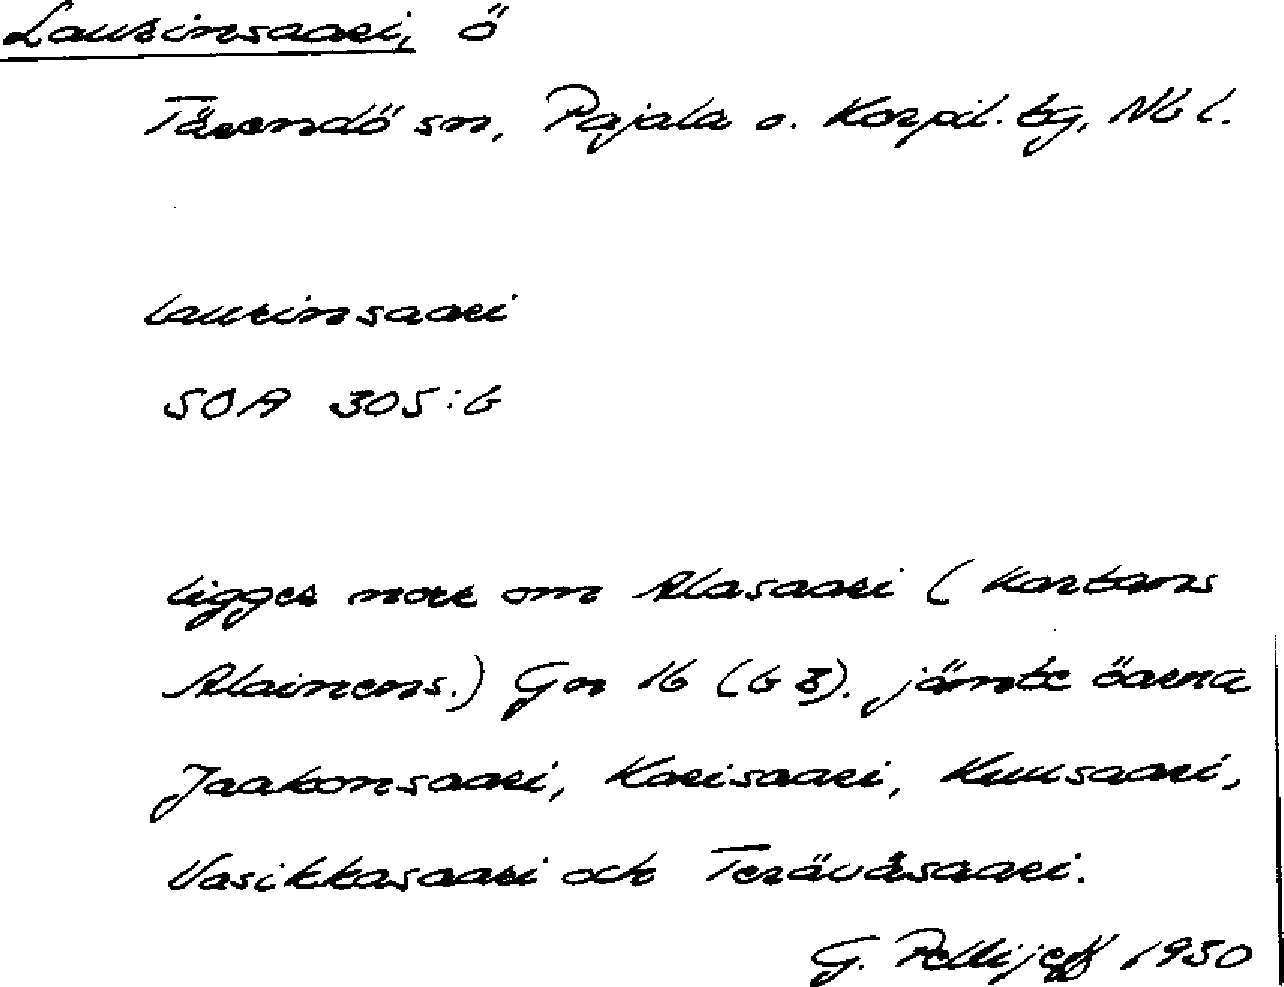 Laurinsaari, ö
Tärendö sn, Pajala o. Korpil. tg, Nb l.
laurinsaari
SOA 305:6
ligger norr om Alasaari (kartans
Alainens.) Gn 16 (6 3). jämte öarna
Jaakonsaari, Karisaari, Kuusaari,
Vasikkasaari och Teräväsaari.
G. Pellijeff 1950